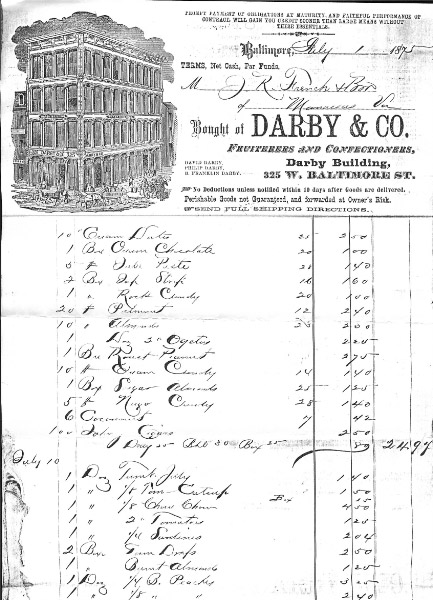 PROMPT PAYMENT OF OBLIGATIONS AT MATURITY, AND FAITHFUL PERFORMANCE OF
CONTRACT, WILL GAIN YOU CREDIT SOONER THAN LARGE MEANS WITHOUT
THESE ESSENTIALS.
Baltimore, July 1 1875
TERMS, Net Cash, Par Funds.
M J. K. & Bro
of Manassas Va
Bought of DARBY & CO.
FRUITERERS AND CONFECTIONERS,
DAVID DARBY,
PHILIP DARBY,
B. FRANKLIN DARBY.
Darby Building,
325 W. BALTIMORE ST.
No Deductions unless notified within 10 days after Goods are delivered.
Perishable Goods not Guaranteed, and forwarded at Owner's Risk.
SEND FULL SHIPPING DIRECTIONS.
10 Cream Nuts 25 250
1 Box Cream Chocolate 20 100
5 # Paste 28 140
2 Box 16 160
1 " Rock Candy 20 100
20 # 12 240
10 " Almonds 25 250
1 Doz 2# Oysters 225
1 Bu Roast Peanut 275
10 # Cream Candy 14 140
1 Box Sugar Almonds 25 125
5 # Candy 28 140
6 Cocoanut 7 42
100 Cigars 250
Bbl 30 Box 25 80 2497
July 10
1 Doz Jelly 140
1 " Tom Catsup 150
1 " 1/8 Chow Chow Bx 450
1 " 2# Tomatoes 120
1 " 1/4 Sardines 204
2 Box Gum Drops 250
1 " Burnt Almonds 120
1 Doz 1/4 B. Peaches 325
1 " 240